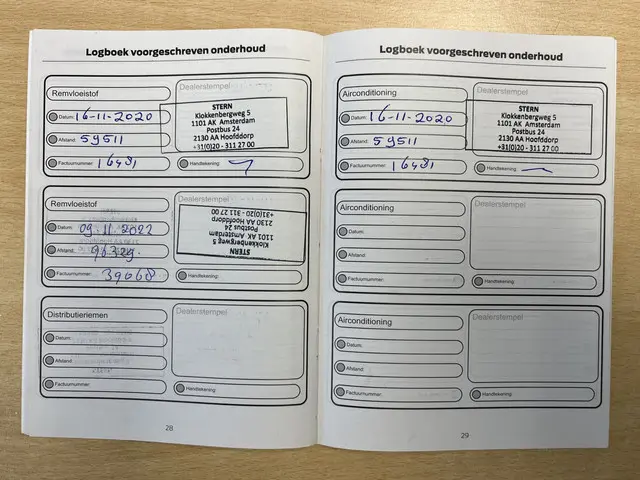 Logboek voorgeschreven onderhoud
Remvloeistof
Dealerstempel
Datum: 16-11-2020
Afstand: 59511
Factuurnummer: 16481
STERN
Klokkenbergweg 5
1101 AK Amsterdam
Postbus 24
2130 AA Hoofddorp
+31(0)20 - 311 27 00
Handtekening:
Remvloeistof
Dealerstempel
Datum: 09.11.2022
Afstand: 96329.
Factuurnummer: 39668
STERN
Klokkenbergweg 5
1101 AK Amsterdam
Postbus 24
2130 AA Hoofddorp
+31(0)20 - 311 27 00
Handtekening:
Distributieriemen
Dealerstempel
Datum:
Afstand:
Factuurnummer:
Handtekening:
28
Logboek voorgeschreven onderhoud
Airconditioning
Dealerstempel
Datum: 16-11-2020
Afstand: 59511
Factuurnummer: 16481
STERN
Klokkenbergweg 5
1101 AK Amsterdam
Postbus 24
2130 AA Hoofddorp
+31(0)20 - 311 27 00
Handtekening:
Airconditioning
Dealerstempel
Datum:
Afstand:
Factuurnummer:
Handtekening:
Airconditioning
Dealerstempel
Datum:
Afstand:
Factuurnummer:
Handtekening:
29